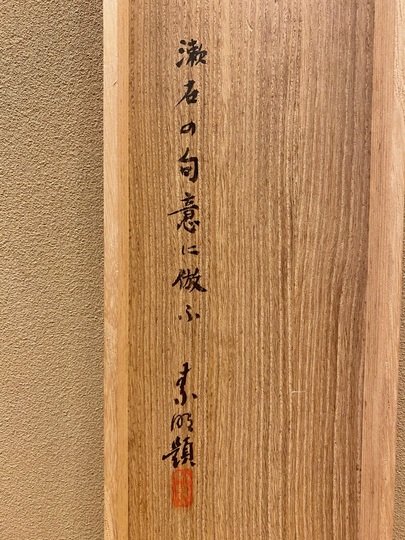 漱石の句意に倣ふ　素明題